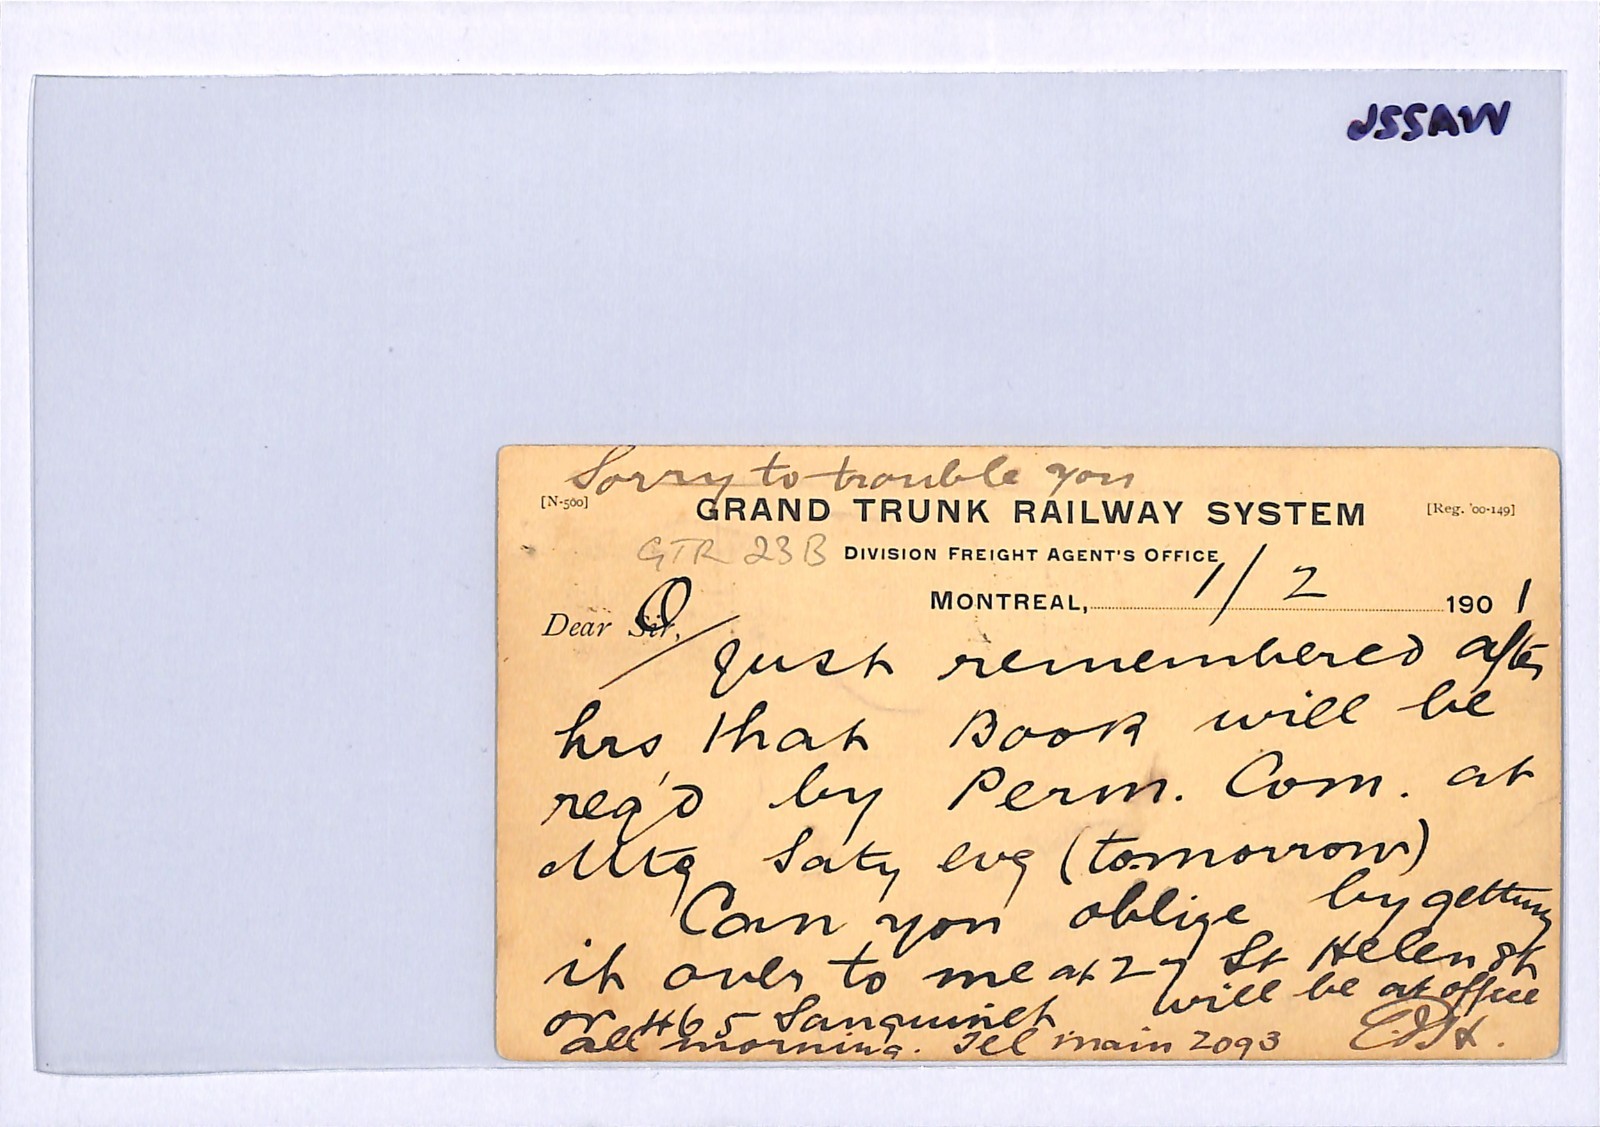 JSSAW
Sorry to trouble you
[N-560] GRAND TRUNK RAILWAY SYSTEM [Reg. '00-149]
GTR 23B DIVISION FREIGHT AGENT'S OFFICE
MONTREAL, 1/2 1901
Dear Sir, O
Just remembered after
hrs that Book will be
req'd by Perm. Com. at
Mtg Saty evg (tomorrow)
Can you oblige by getting
it over to me at 27 St Helen St
or 465 Sanguinet will be at office
all morning. Tel main 2093